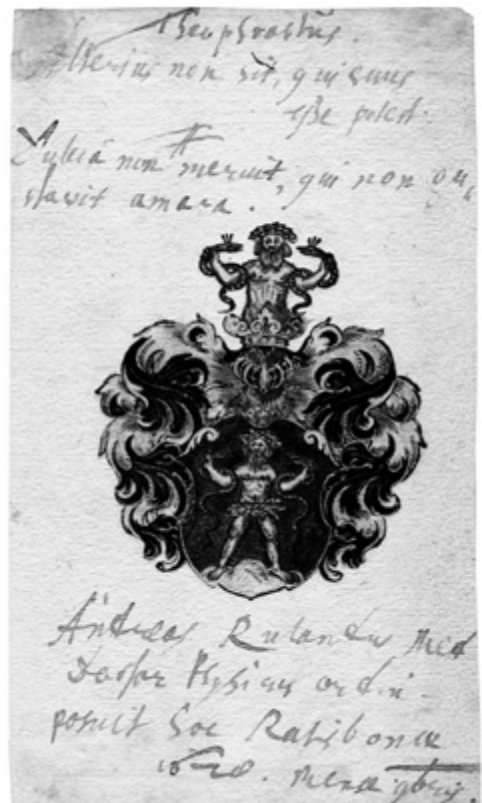 Theophrastus.
Alterius non sit, qui suus
esse potest.
Dulcia non meruit, qui non gu,
stavit amara.
Andreas Rulandus Med
Doctor Physicus ordin.
posuit hoc Ratisbonæ
mense 9bris.